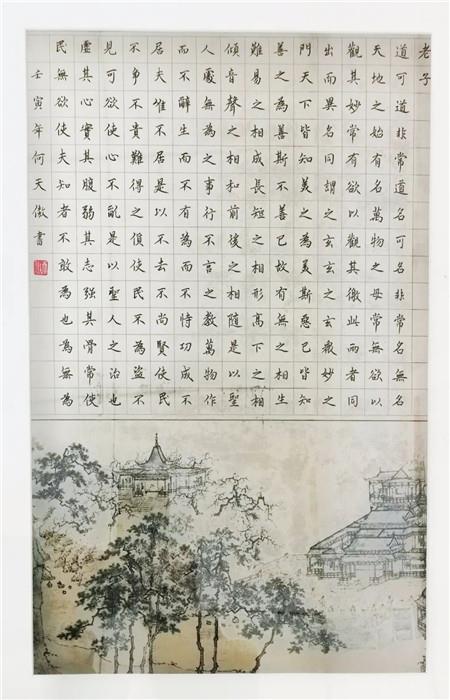 老子
道可道非常道名可名非常名無名
天地之始有名萬物之母常無欲以
觀其妙常有欲以觀其徼此而者同
出而異名同謂之玄之玄衆妙之
門天下皆知美之為美斯惡已皆知
善之為善斯不善已故有無之相生
難易之相成長短之相形高下之相
傾音聲之相和前後之相隨是以聖
人處無為之事行不言之教萬物作
而不辭生而不有為而不恃功成不
居夫唯不居是以不去不尚賢使民
不爭不貴難得之貨使民不為盜不
見可欲使心不亂是以聖人之治也
虛其心實其腹弱其志强其骨常使
民無欲使夫知者不敢為也為無為
壬寅年何天傲書